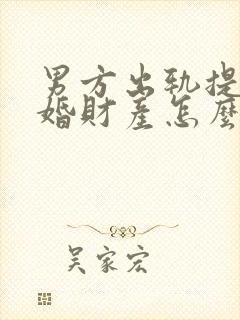 男方出轨提
婚财产怎麼
吴家宏